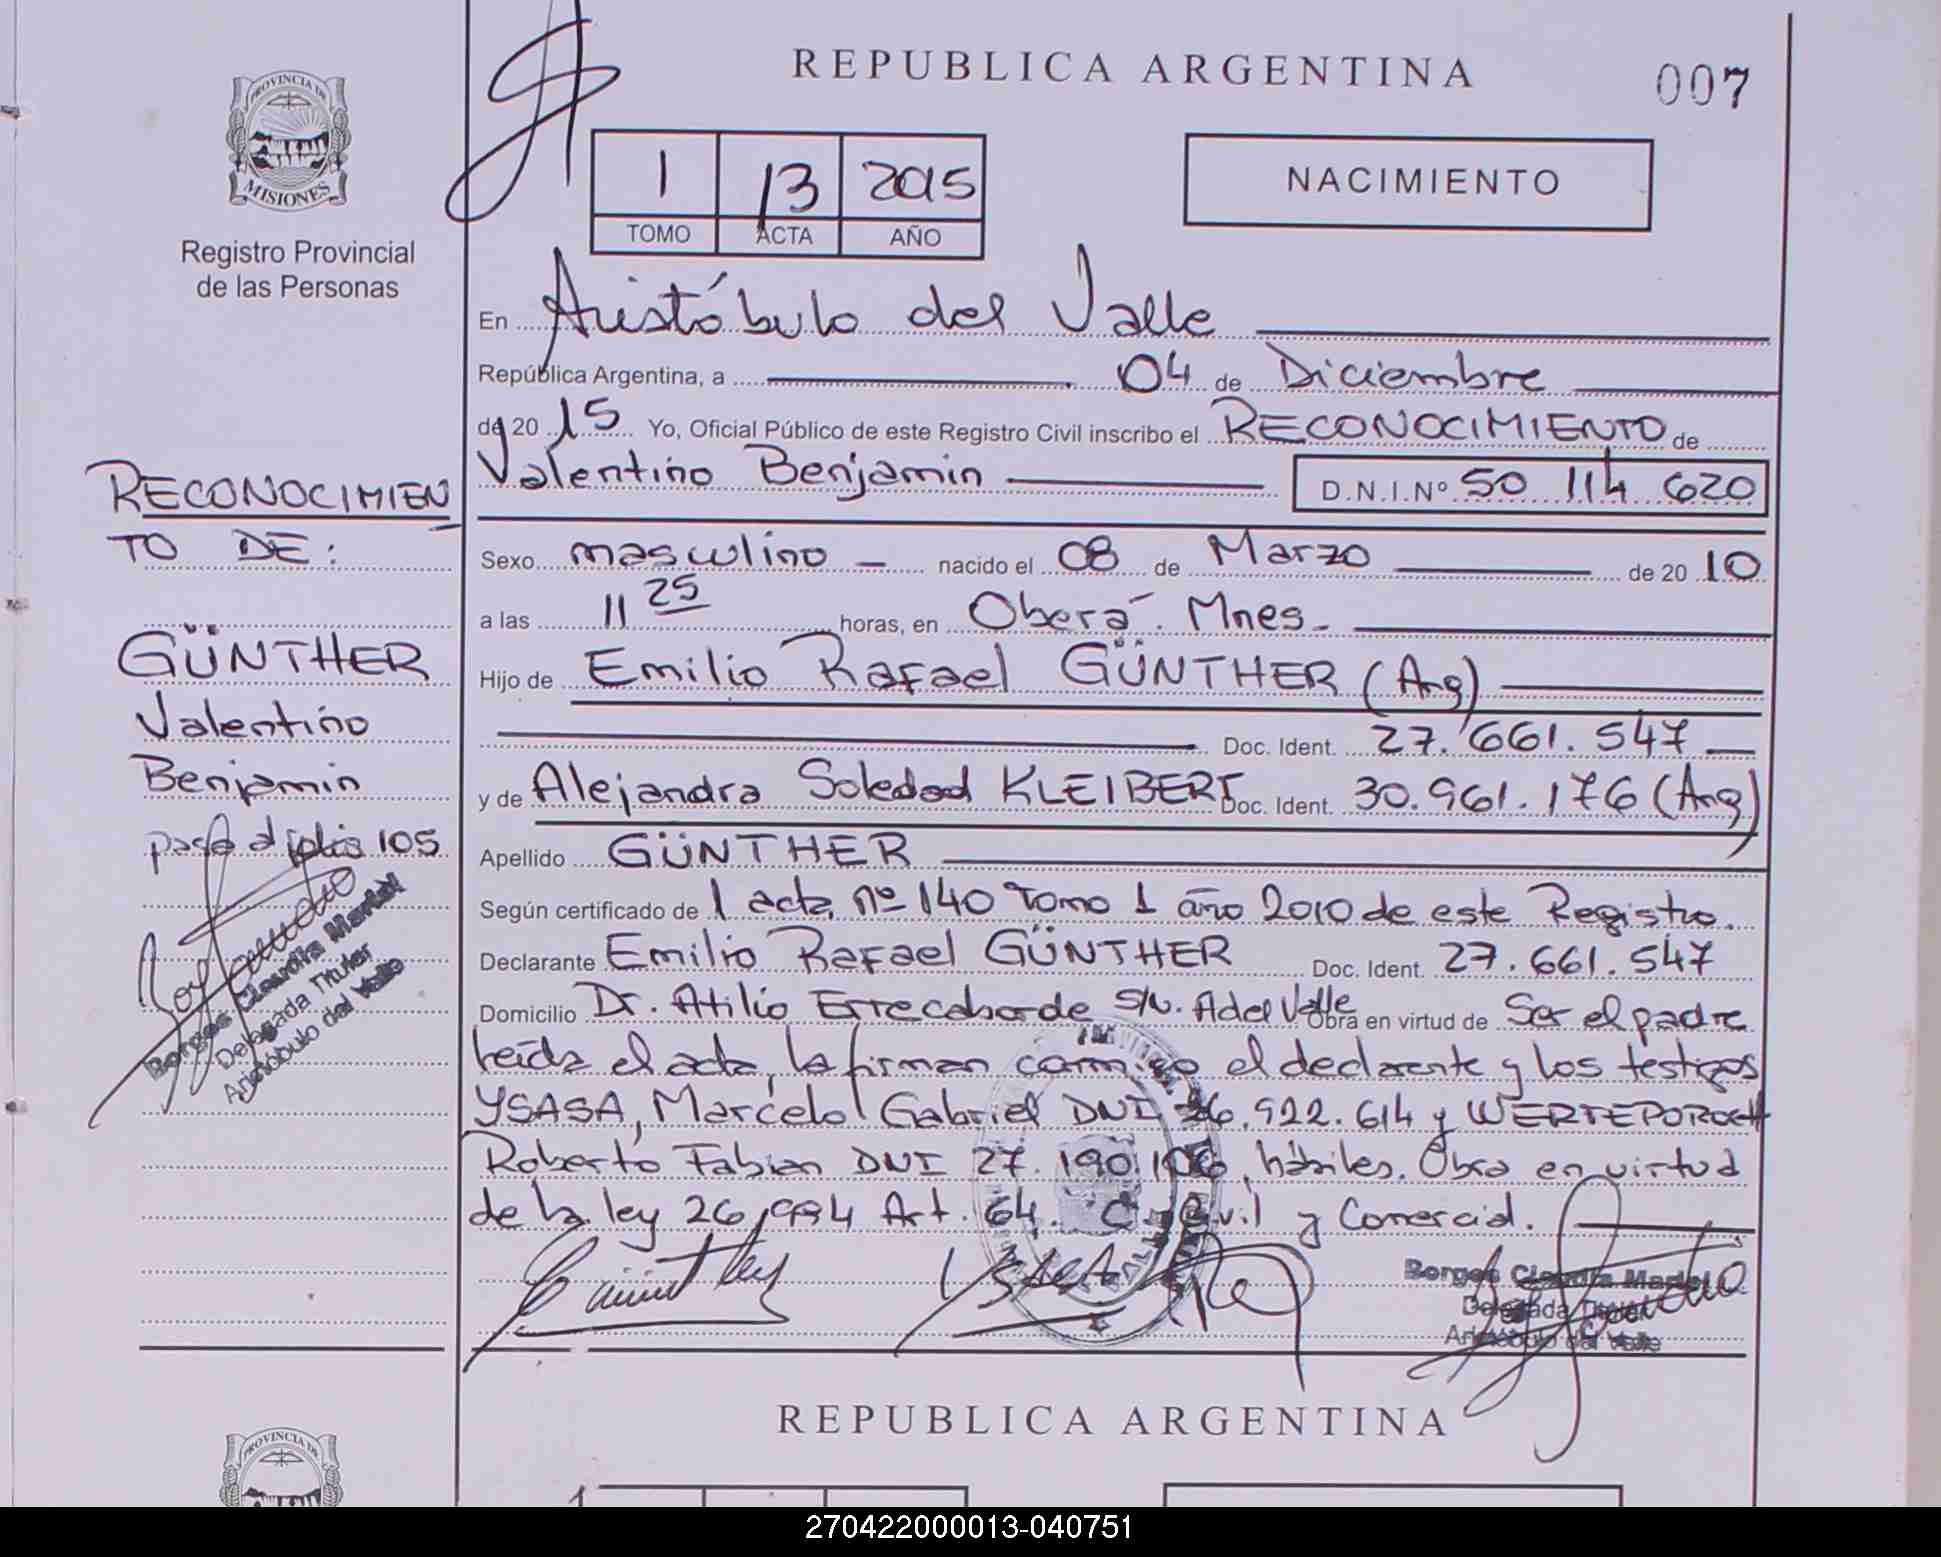 REPUBLICA ARGENTINA
007
PROVINCIA DE
MISIONES
Registro Provincial
de las Personas
1 13 2015
TOMO ACTA AÑO
NACIMIENTO
En Aristóbulo del Valle
República Argentina, a 04 de Diciembre
de 20 15 Yo, Oficial Público de este Registro Civil inscribo el RECONOCIMIENTO de
Valentino Benjamin D.N.I.Nº 50 114 620
Sexo masculino nacido el 08 de Marzo de 20 10
a las 11 25 horas, en Oberá. Mnes.
Hijo de Emilio Rafael GÜNTHER (Arg)
Doc. Ident. 27.661.547
y de Alejandra Soledad KLEIBERT Doc. Ident. 30.961.176 (Arg)
Apellido GÜNTHER
Según certificado de 1 acta nº 140 Tomo 1 año 2010 de este Registro.
Declarante Emilio Rafael GÜNTHER Doc. Ident. 27.661.547
Domicilio Dr. Atilio Errecaborde S/N. A del Valle Obra en virtud de Ser el padre
leída el acta, la firman conmigo el declarante y los testigos
YSASA, Marcelo Gabriel DNI 922.614 y
Roberto Fabian DNI 27.190. hábiles. Obra en virtud
de la ley 26,994 Art. 64. C. Civil y Comercial.
Borges Claudia Mariel
Delegada Titular
Aristóbulo del Valle
RECONOCIMIEN
TO DE:
GÜNTHER
Valentino
Benjamin
pasa al folio 105
Borges Claudia Mariel
Delegada Titular
Aristóbulo del Valle
REPUBLICA ARGENTINA
PROVINCIA DE
270422000013-040751